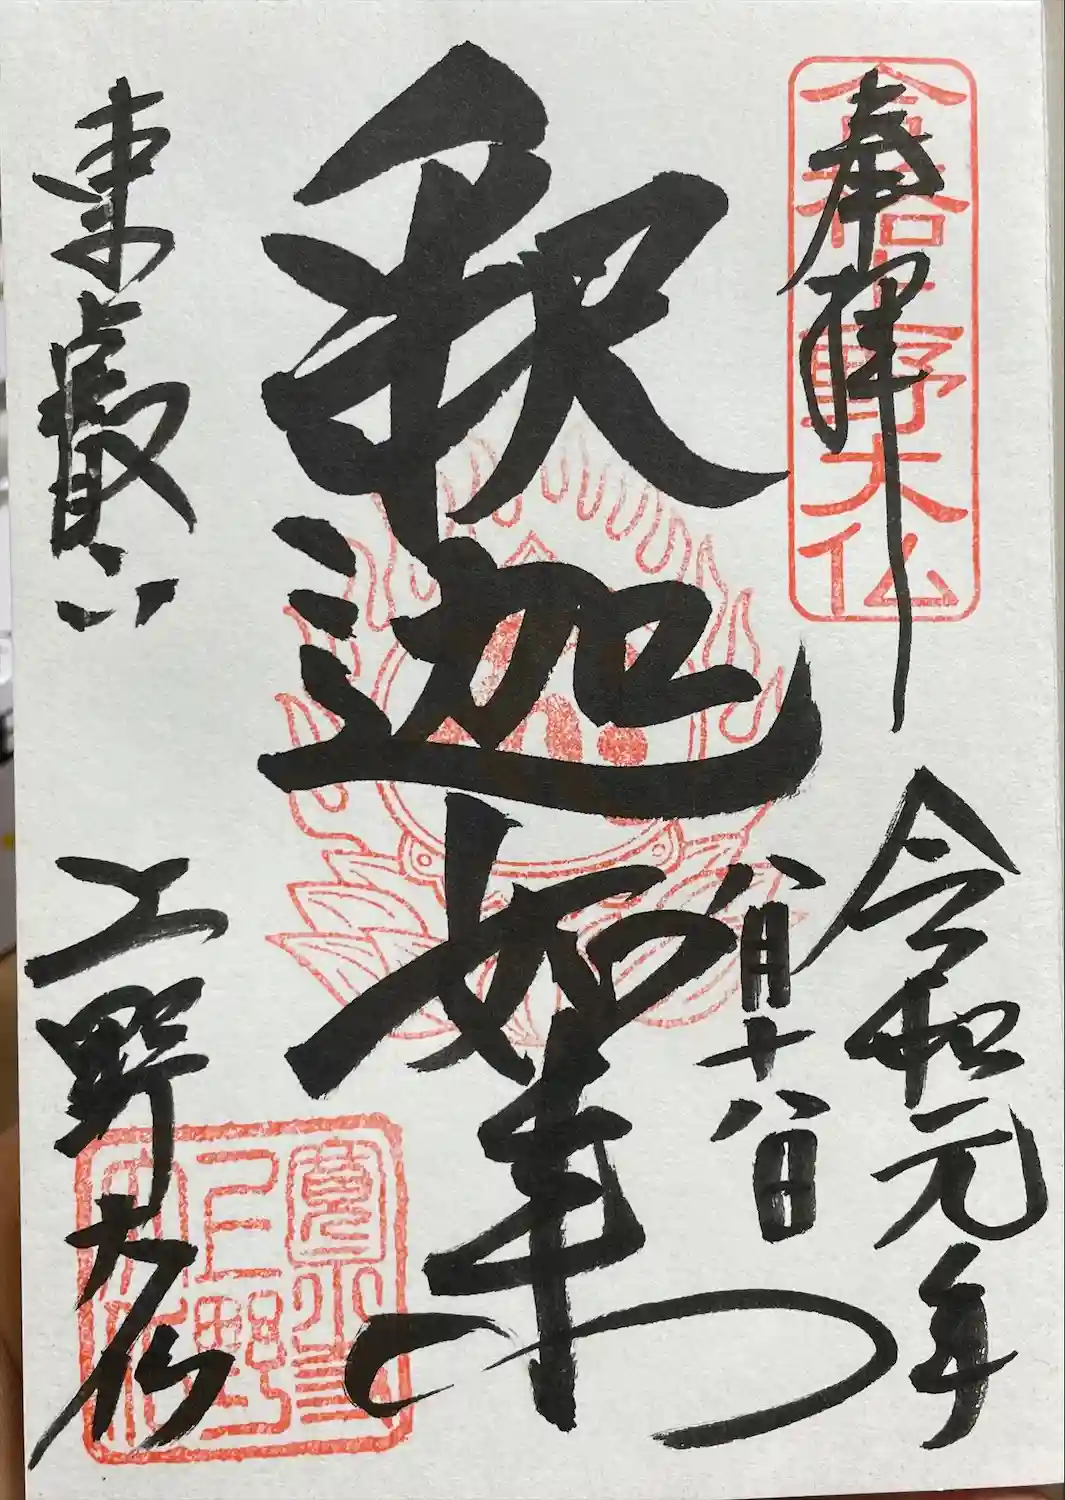 奉拝
合格上野大仏
令和元年
八月十八日
釈迦如来
東叡山
上野大仏
上野
大仏